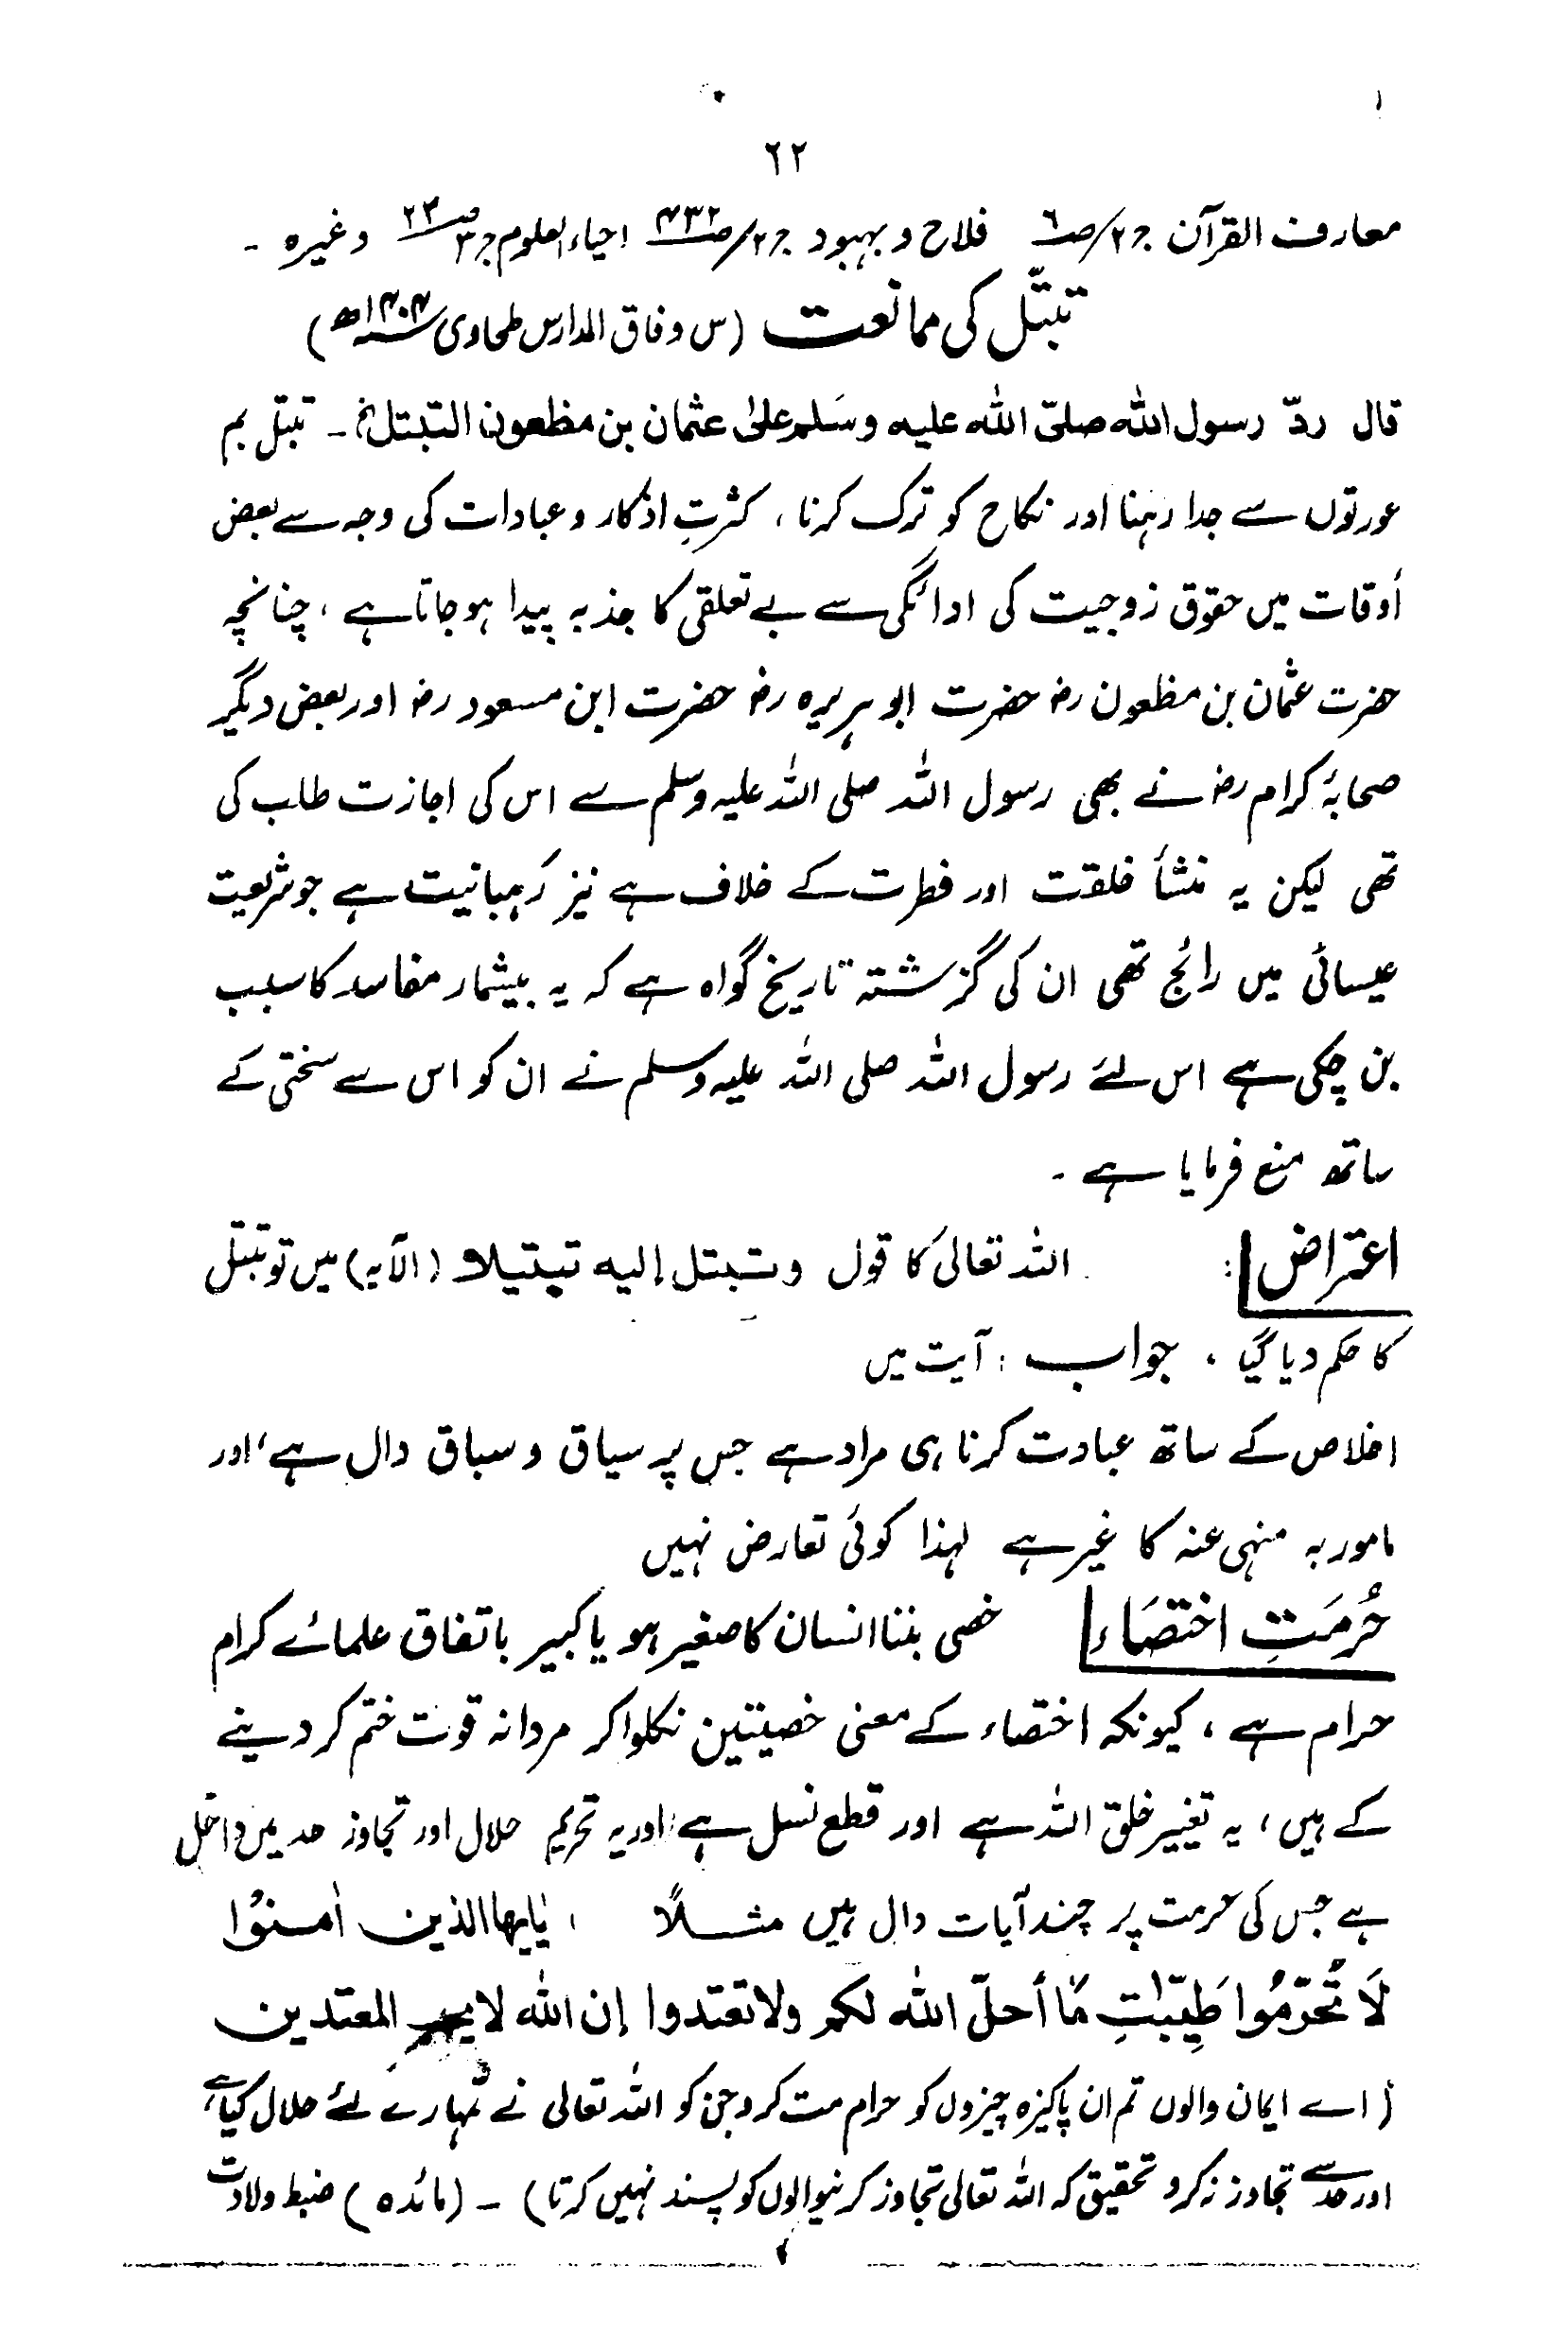 ٦٢
معارف القرآن ج٢/ص٦ فلاح و بہبود ج٢/ص٤٣٢ احیاء العلوم ج٣ ص٢٣ وغیرہ ۔
تبتّل کی ممانعت (س وفاق المدارس طحاوی ١٤٠٤ھ)
قال ردّ رسول الله صلّی الله علیہ وسَلم علیٰ عثمان بن مظعون التبتل الخ ۔ تبتّل بم
عورتوں سے جدا رہنا اور نکاح کو ترک کرنا ، کثرتِ اذکار و عبادات کی وجہ سے بعض
أوقات میں حقوق زوجیت کی ادائگی سے بے تعلقی کا جذبہ پیدا ہو جاتا ہے ، چنانچہ
حضرت عثمان بن مظعون رض حضرت ابو ہریرہ رض حضرت ابن مسعود رض اور بعض دیگر
صحابۂ کرام رض نے بھی رسول اللہ صلی اللہ علیہ وسلم سے اس کی اجازت طلب کی
تھی لیکن یہ منشأ خلقت اور فطرت کے خلاف ہے نیز رَہبانیت ہے جو شریعت
عیسائی میں رائج تھی ان کی گزشتہ تاریخ گواہ ہے کہ یہ بیشمار مفاسد کا سبب
بن چکی ہے اس لئے رسول اللہ صلی اللہ علیہ وسلم نے ان کو اس سے سختی کے
ساتھ منع فرمایا ہے ۔
اعتراض : اللہ تعالیٰ کا قول وتبتل إلیہ تبتیلا (الآیہ) میں تو تبتل
کا حکم دیا گیا ، جواب : آیت میں
اخلاص کے ساتھ عبادت کرنا ہی مراد ہے جس پر سیاق و سباق دال ہے ، اور
مامور بہ منہی عنہ کا غیر ہے لہذا کوئی تعارض نہیں
حُرمَتِ اختصَاء خصی بننا انسان کا صغیر ہو یا کبیر باتفاق علمائے کرام
حرام ہے ، کیونکہ اختصاء کے معنی خصیتین نکلوا کر مردانہ قوت ختم کر دینے
کے ہیں ، یہ تغییر خلق اللہ ہے اور قطع نسل ہے اور یہ تحریم حلال اور تجاوز حد میں داخل
ہے جس کی حرمت پر چند آیات دال ہیں مثلاً ، یٰایھا الذین اٰمنوُا
لَا تُحَرّمُوا طَیِّبٰتِ مَا أحلّ الله لکم ولا تعتدوا إن الله لا یحب المعتدین
( اے ایمان والوں تم ان پاکیزہ چیزوں کو حرام مت کرو جن کو اللہ تعالی نے تمہارے لئے حلال کیا ہے
اور حد سے تجاوز نہ کرو تحقیق کہ اللہ تعالی تجاوز کرنیوالوں کو پسند نہیں کرتا ) ۔ (مائدہ) ضبط ولادت